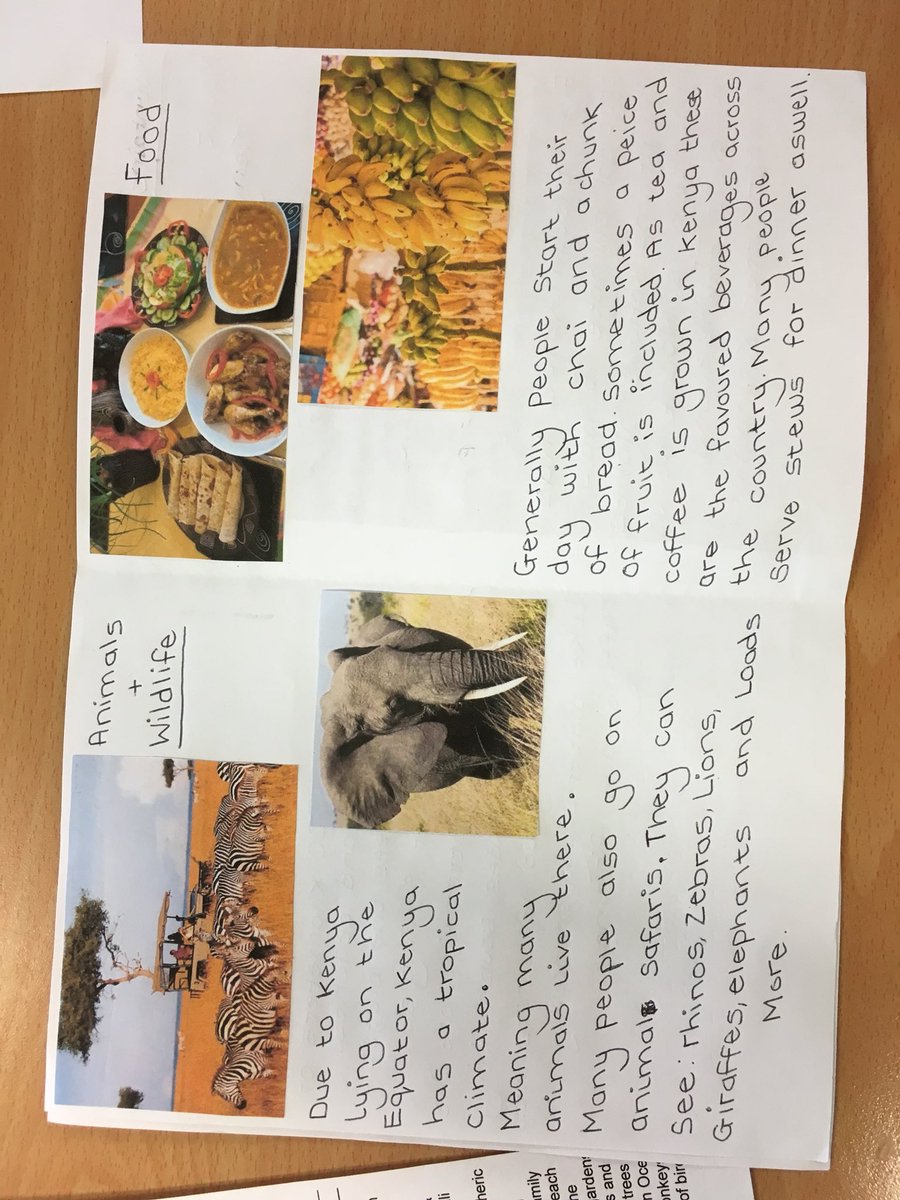 Animals
+
Wildlife
Due to Kenya
Lying on the
Equator, Kenya
has a tropical
climate.
Meaning many
animals live there.
Many people also go on
animal safaris. They can
See: rhinos, Zebras, Lions,
Giraffes, elephants and Loads
More.
Food
Generally people start their
day with chai and a chunk
of bread. Sometimes a peice
of fruit is included. As tea and
coffee is grown in Kenya these
are the favoured beverages across
the country. Many people
Serve stews for dinner aswell.
heric
li
amily
each
ne
gardens
s and
trees
n Oce
onkey
of bir